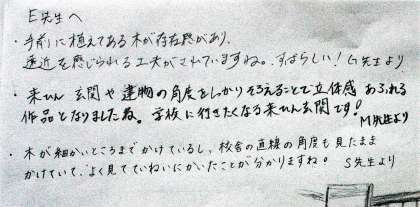 E先生へ
・手前に植えてある木が存在感があり、
遠近を感じられる工夫がされていますね。すばらしい！G先生より
・来ひん玄関や建物の角度をしっかりそろえることで立体感あふれる
作品となりましたね。学校に行きたくなる来ひん玄関です！
M先生より
・木が細かいところまでかけているし、校舎の直線の角度も見たまま
かけていて、よく見てていねいにかいたことが分かりますね。S先生より